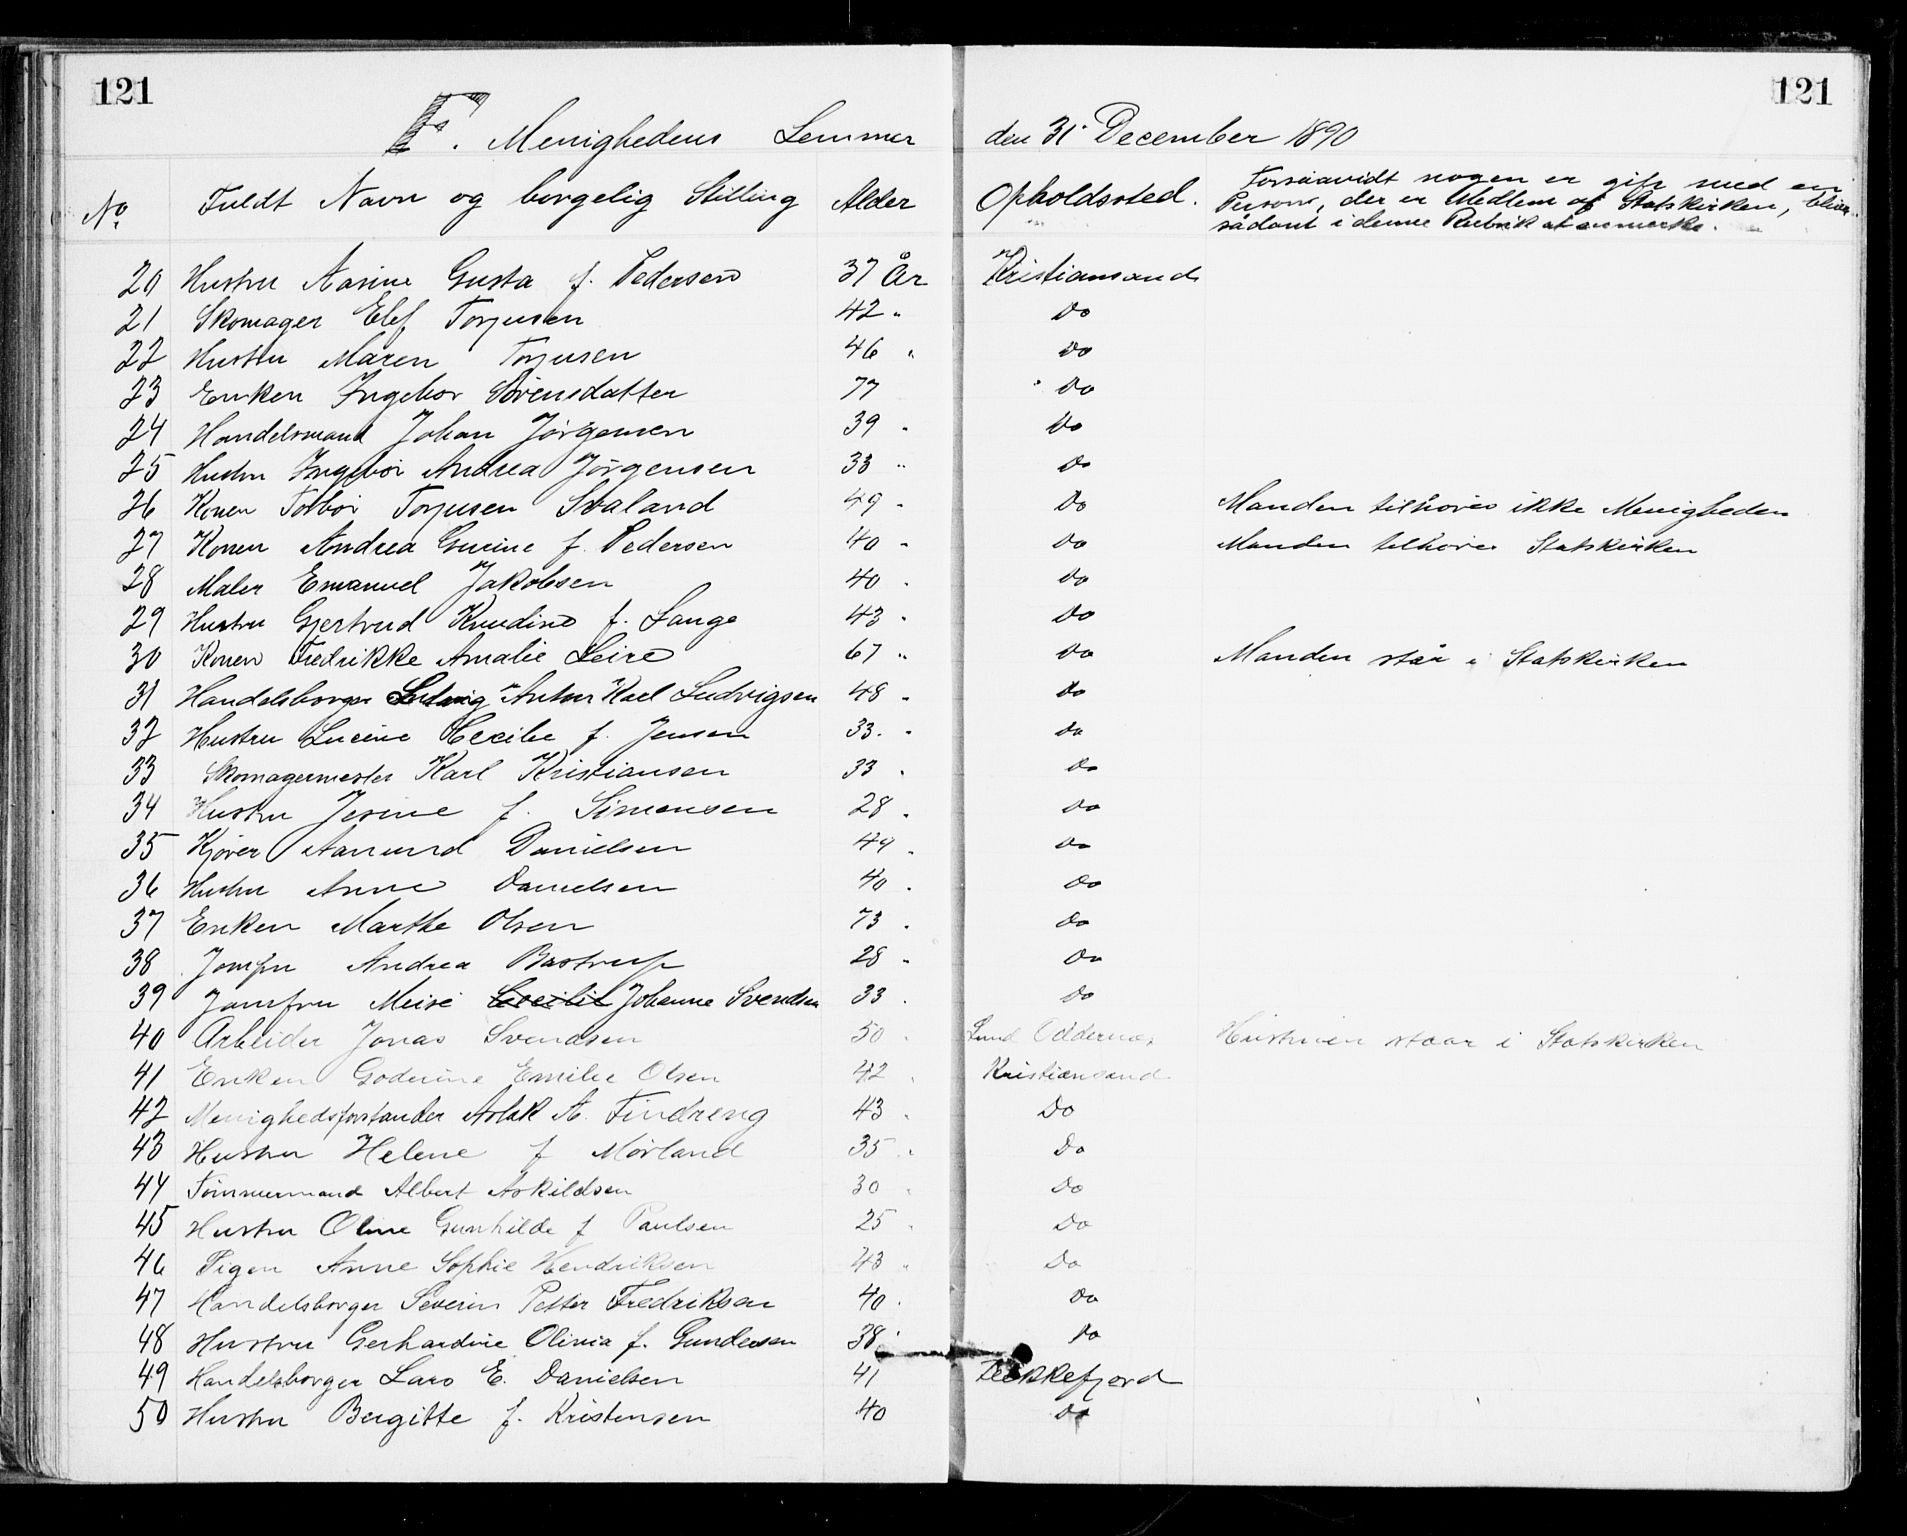 121 121
F. Menighedens Lemmer den 31. December 1890
No. Fuldt Navn og borgelig Stilling Alder Opholdssted. Forsaavidt nogen er gift med en
Person, der er Medlem af Statskirken, bliver
sådant i denne Rubrik at anmerke.
20 Hustru Aasine Gusta f. Pedersen 37 År Kristiansand
21 Skomager Elef Torjusen 42 " Do
22 Hustru Maren Torjusen 46 " Do
23 Enken Ingebor Sørensdatter 77 Do
24 Handelsmand Johan Jørgensen 39 " Do
25 Hustru Ingebor Andrea Jørgensen 33 " Do
26 Konen Tolbor Torjusen Svaland 49 " Do Manden tilhører ikke Menigheden
27 Konen Andrea Gurine f. Pedersen 40 " Do Manden tilhører Statskirken
28 Maler Emanuel Jakobsen 40 " Do
29 Hustru Gjertrud Knudine f. Lange 43 " Do
30 Konen Fredrikke Amalie Leire 67 " Do Manden står i Statskirken
31 Handelsborger Ludvig Anton Karl Ludvigsen 48 " Do
32 Hustru Lucine Cecilie f. Jensen 33. " Do
33 Skomagermester Karl Kristiansen 33 " Do
34 Hustru Jesine f. Simonsen 28 " Do
35 Kjører Aanund Danielsen 49 " Do
36 Hustru Anne Danielsen 40 " Do
37 Enken Marthe Olsen 73 " Do
38 Jomfru Andrea Bastrup 28 " Do
39 Jomfru Meire Cecilie Johanne Svendsen 33 " Do
40 Arbeider Jonas Svendsen 50 " Lund Oddernes Hustruen staar i Statskirken
41 Enken Goderine Emilie Olsen 42 " Kristiansand
42 Menighedsforstander Aslak A. Tindreng 43 " Do
43 Hustru Helene f Mørland 35 " Do
44 Tømmermand Albert Askildsen 30 " Do
45 Hustru Oline Gunhilde f Paulsen 25 " Do
46 Pigen Anne Sophie Hendriksen 43 " Do
47 Handelsborger Severin Petter Fredriksen 40 " Do
48 Hustru Gerhardine Olivia f. Gundersen 38 " Do
49 Handelsborger Lars E. Danielsen 41 Flekkefjord
50 Hustru Bergitte f. Kristensen 40 Do